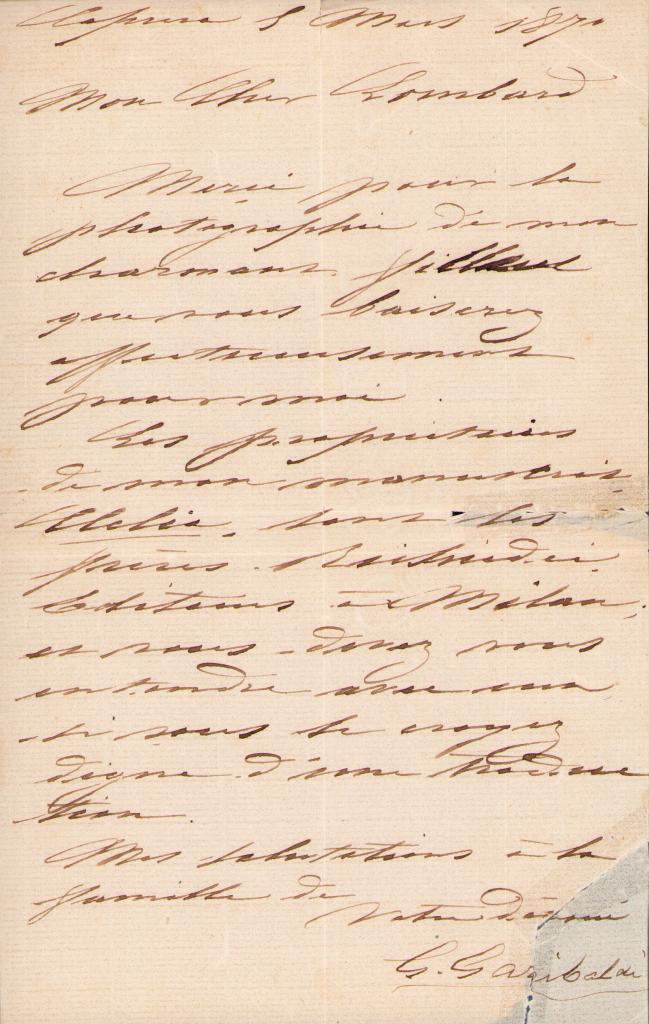 Caprera 8 Mars 1870
Mon Cher Lombard
Merci pour la
photographie de mon
charmant filleul
que vous baiserez
affectueusement
pour moi
Les propriétaires
de mon manuscrit,
Clelia, sont les
frères Rechiedei
Editeurs à Milan,
et vous devez vous
entendre avec eux
si vous le croyez
digne d'une traduc
tion.
Mes salutations à la
famille de
votre dévoué
G. Garibaldi